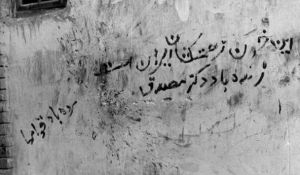 این خون زحمتکشان ایران است
زنده باد دکتر مصدق
مرده باد قوام